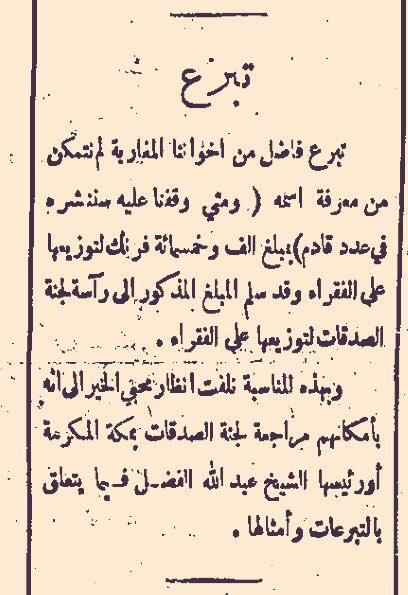 تبرع
تبرع فاضل من اخواننا المغاربة لم نتمكن
من معرفة اسمه ( ومتي وقفنا عليه سننشره
في عدد قادم) بمبلغ الف وخمسمائة فرنك لتوزيعها
علي الفقراء وقد سلم المبلغ المذكور الى رآسة لجنة
الصدقات لتوزيعها علي الفقراء .
وبهذه المناسبة نلفت انظار محبي الخير الى انه
بأمكانهم مراجعة لجنة الصدقات بمكة المكرمة
أو رئيسها الشيخ عبد الله الفضل فيما يتعلق
بالتبرعات وأمثالها .